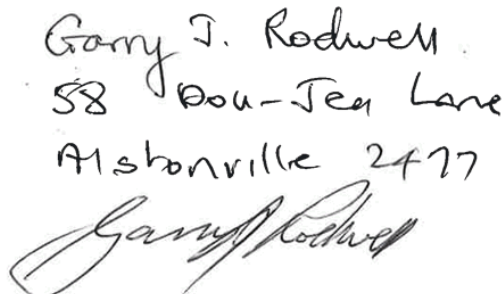 Garry J. Rodwell.
58 Dou-Jea Lane
Alstonville 2477
Garry J Rodwell